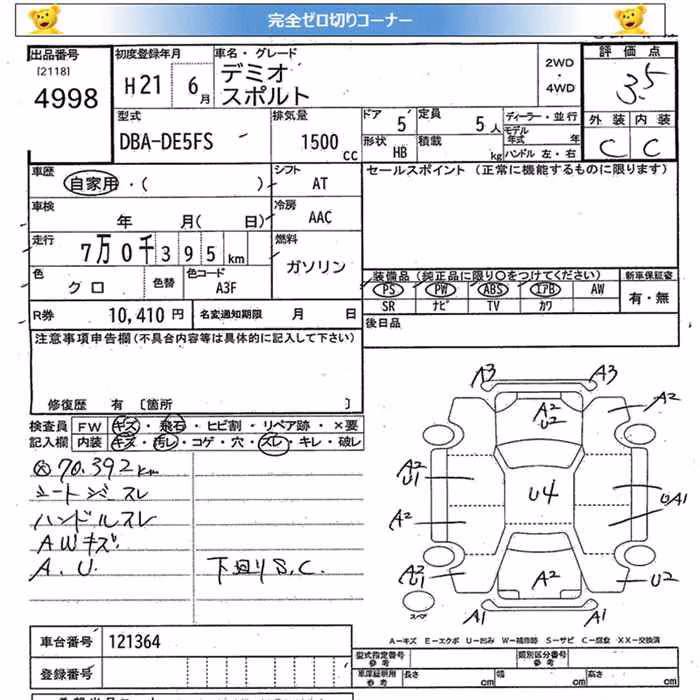 完全ゼロ切りコーナー
出品番号
[2118]
4998
初度登録年月
H21 6月
車名・グレード
デミオ
スポルト
2WD
・
4WD
評価点
3.5
外装 内装
C C
型式
DBA-DE5FS
排気量
1500
cc
ドア
5
定員
5人
形状
HB
積載
kg
ディーラー・並行
モデル年式 年
ハンドル 左・右
車歴
自家用・( )
シフト
AT
車検
年 月( 日)
冷房
AAC
走行
7万0千395km
燃料
ガソリン
色
クロ
色替
色コード
A3F
R券
10,410円
名変通知期限 月 日
セールスポイント (正常に機能するものに限ります)
装備品 (純正品に限り○をつけてください)
新車保証書
PS PW ABS エアB AW
SR ナビ TV カワ
有・無
後日品
注意事項申告欄(不具合内容等は具体的に記入して下さい)
修復歴 有 [箇所 ]
検査員 FW キズ・飛石・ヒビ割・リペア跡・×要
記入欄 内装 キズ・汚レ・コゲ・穴・スレ・キレ・破レ
70.392km
シートジミスレ
ハンドルスレ
AWキズ
A.U
下回りS.C.
A3 A3
A2
U2
A2
A2
U1
U4
UA1
A2
A2
U1
A2
U2
スペア
A1 A1
A-キズ E-エクボ U-凹み W-補修跡 S-サビ C-腐食 XX-交換済
車台番号 121364
登録番号
型式指定番号
参考
類別区分番号
参考
車庫証明用
参考
長さ cm 幅 cm 高さ cm